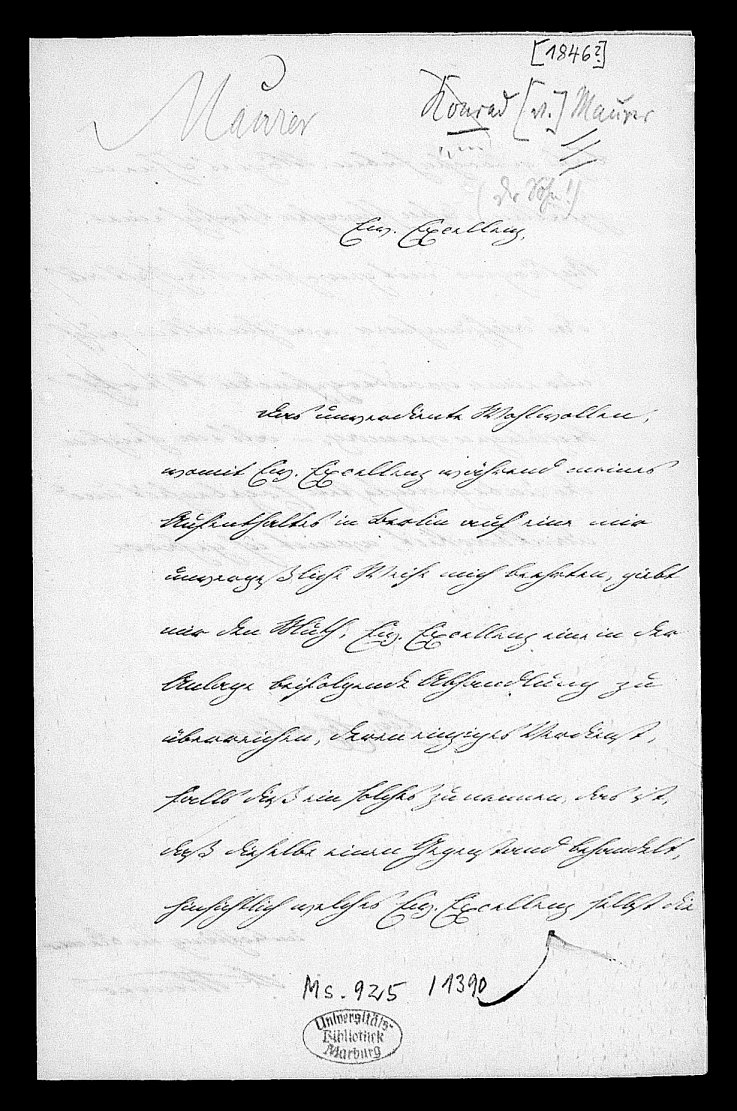 [1846?]
Maurer
Konrad [v.] Maurer
(der Sohn!)
Ew. Excellenz,
das unverdiente Wohlwollen,
womit Ew. Excellenz während meines
Aufenthaltes in Berlin auf eine mir
unvergeßliche Weise mich beehrten, giebt
mir den Muth, Ew. Excellenz eine in der
Anlage beifolgende Abhandlung zu
überreichen, deren einziges Verdienst,
falls dieß ein solches zu nennen, das ist,
daß dieselbe einen Gegenstand behandelt,
hinsichtlich welches Ew. Excellenz selbst die
Ms. 925 / 1390
Universitäts-
Bibliothek
Marburg